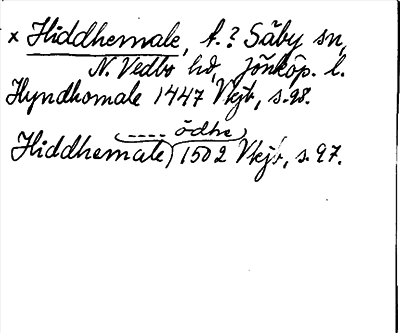 × Hiddhemale, f.? Säby sn,
N. Vedbo hd, Jönköp. l.
Hyndhomale 1447 Vkjb, s. 98.
(---- ödhe)
Hiddhemale, 1502 Vkjb, s. 97.